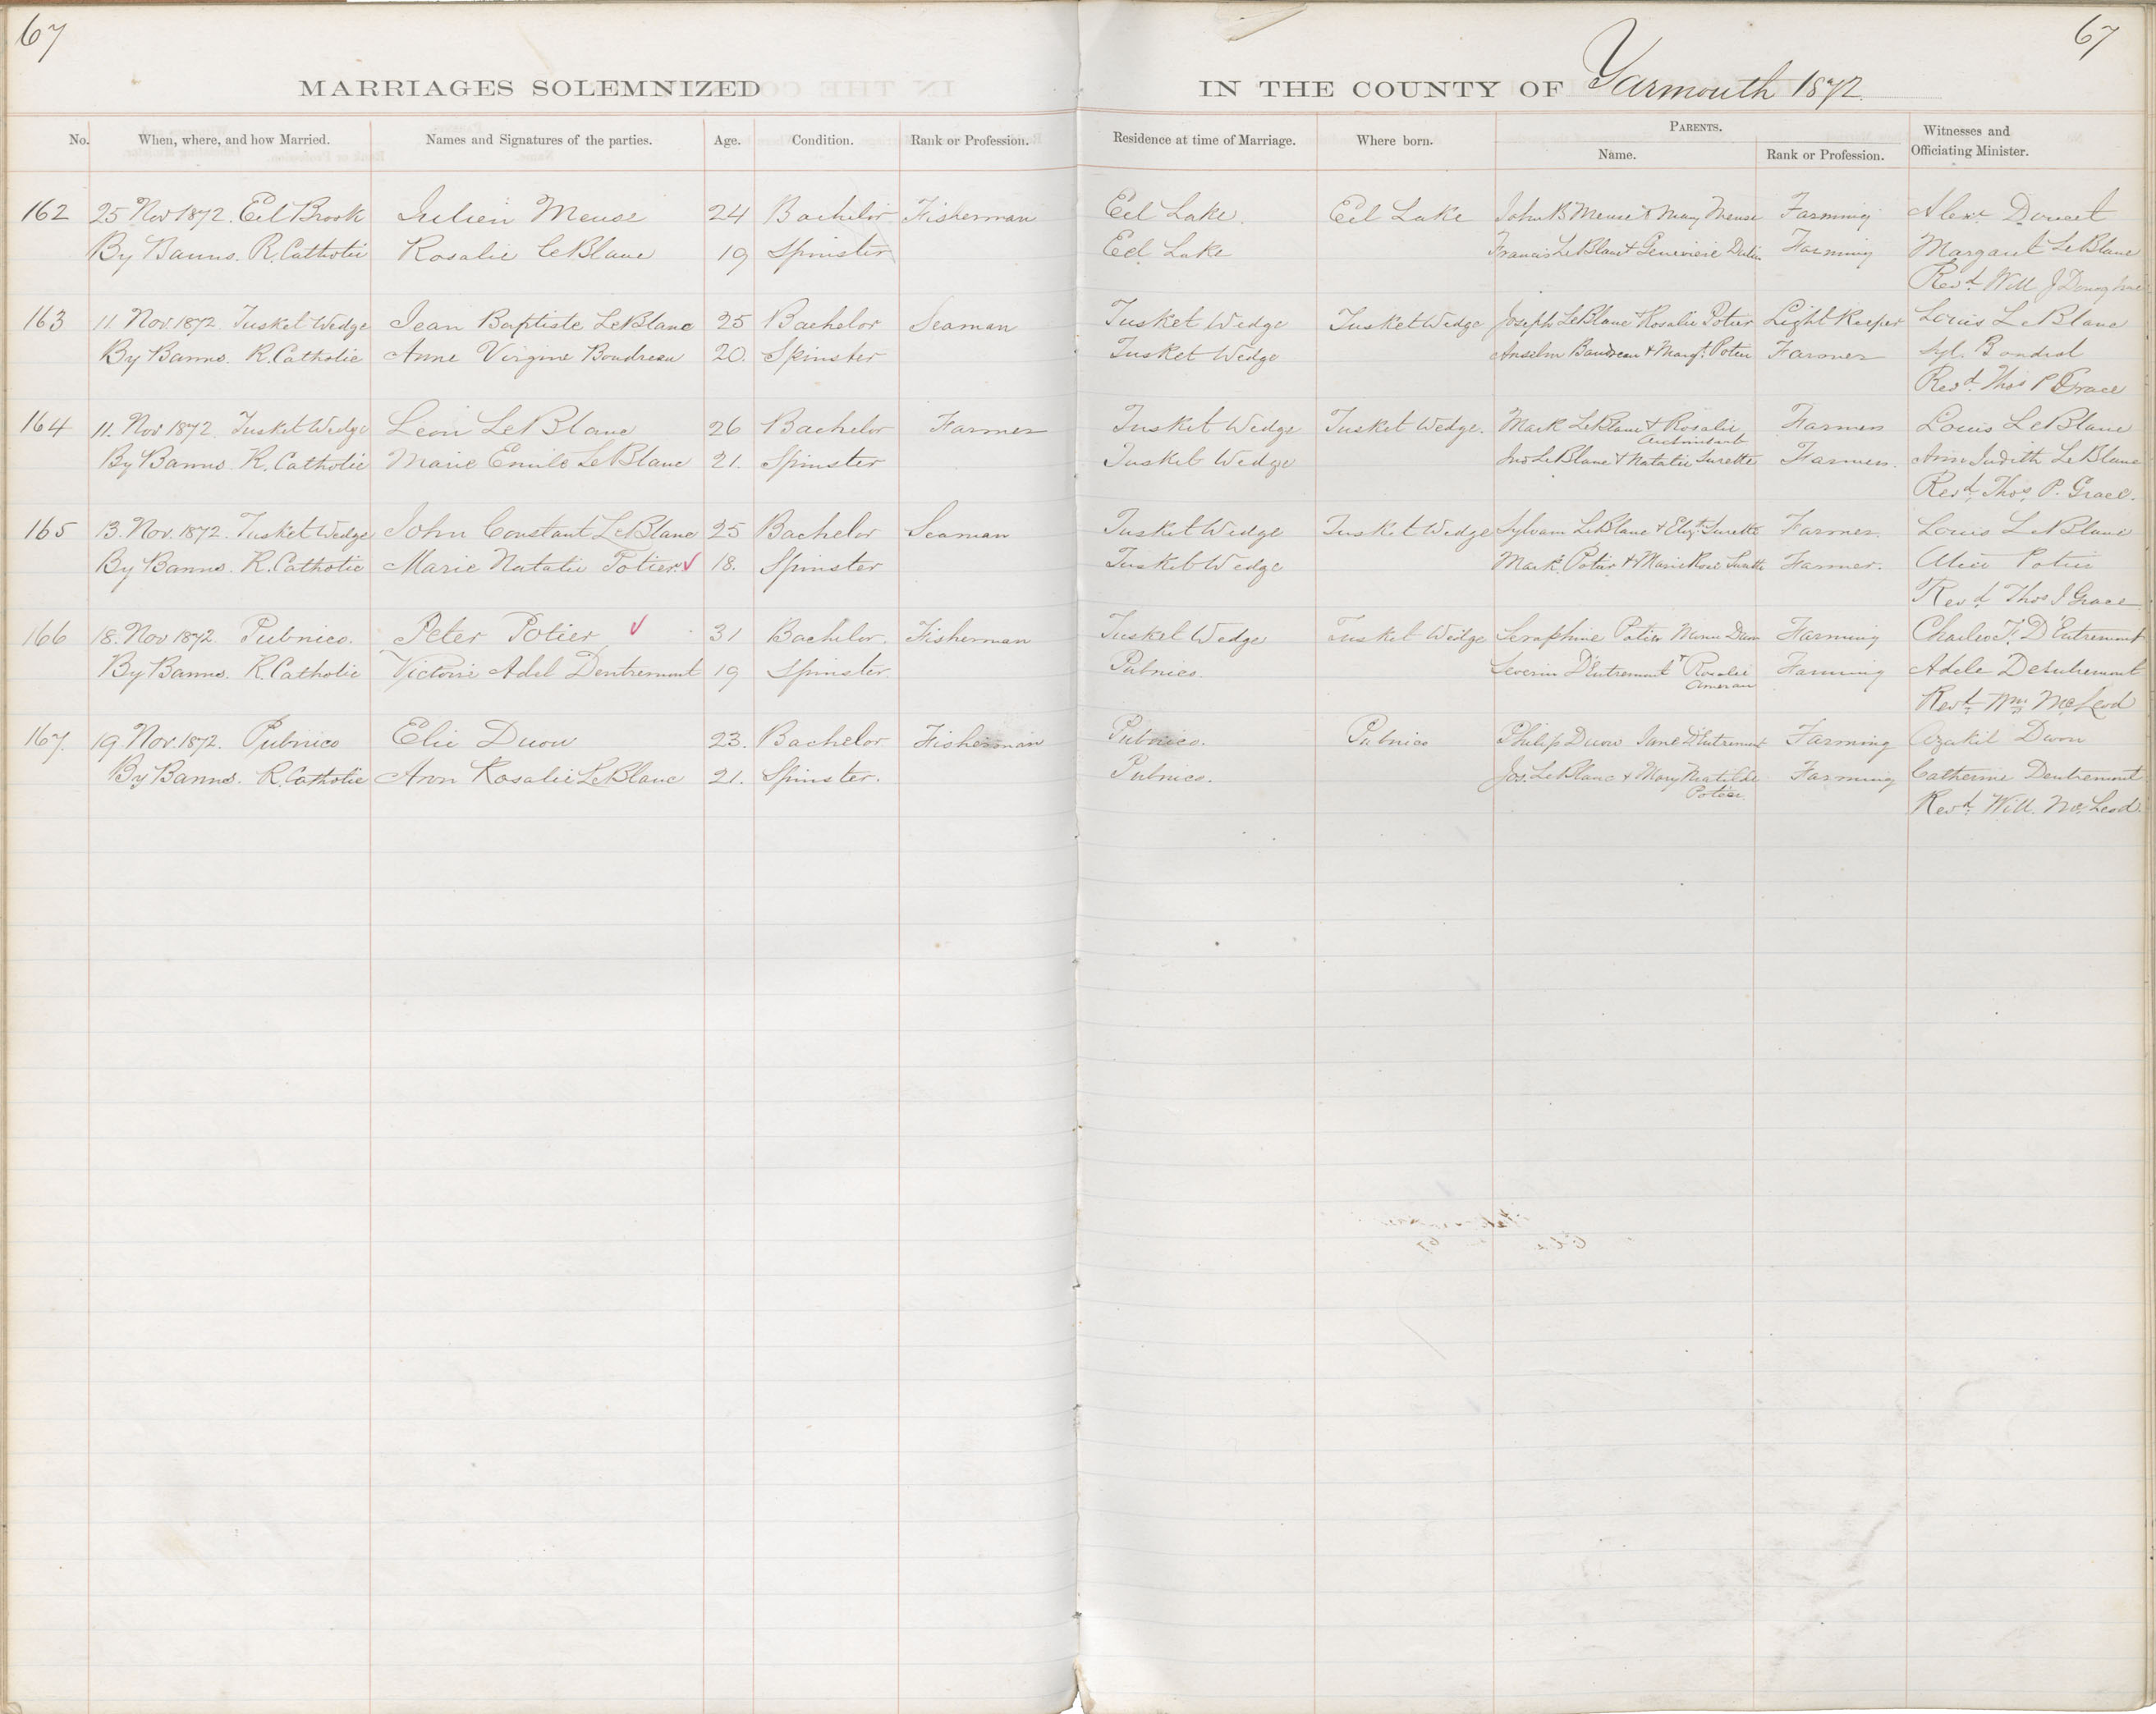 67
67
MARRIAGES SOLEMNIZED IN THE COUNTY OF Yarmouth 1872.
No. When, where, and how Married. Names and Signatures of the parties. Age. Condition. Rank or Profession. Residence at time of Marriage. Where born. PARENTS. Name. Rank or Profession. Witnesses and Officiating Minister.
162 25 Nov 1872. Eel Brook Julien Meuse 24 Bachelor Fisherman Eel Lake. Eel Lake John B Meuse & Mary Meuse Farming Alexr Doucet
By Banns. R. Catholic Rosalie LeBlanc 19 Spinster Eel Lake Francis LeBlanc & Genevieve Farming Margaret LeBlanc
Revd. Will J
163 11. Nov. 1872. Tusket Wedge Jean Baptiste LeBlanc 25 Bachelor Seaman Tusket Wedge Tusket Wedge Joseph LeBlanc & Rosalie Potier Light Keeper Louis LeBlanc
By Banns. R. Catholic Anne Virgine Boudreau 20. Spinster Tusket Wedge Anselm Baudreau & Margt. Potier Farmer Syl.
Revd. Thos P Grace
164 11. Nov 1872. Tusket Wedge Leon LeBlanc 26 Bachelor Farmer Tusket Wedge Tusket Wedge. Mark LeBlanc & Rosalie Farmer Louis LeBlanc
By Banns. R. Catholic Marie Emile LeBlanc 21. Spinster Tusket Wedge Jno LeBlanc & Natalie Surette Farmer. Ann Judith LeBlanc
Revd. Thos. P. Grace.
165 13. Nov. 1872. Tusket Wedge John Constant LeBlanc 25 Bachelor Seaman Tusket Wedge Tusket Wedge Sylvam LeBlanc & Elizth Surette Farmer. Louis LeBlanc
By Banns. R. Catholic Marie Natalie Potier 18. Spinster Tusket Wedge Mark Potier & Marie Rose Surette Farmer. Alice Potier
Revd. Thos J Grace
166 18. Nov 1872. Pubnico. Peter Potier 31 Bachelor. Fisherman Tusket Wedge Tusket Wedge Seraphine Potier Farming Charles F. D'Entremont
By Banns. R. Catholic Victoire Adel Dentremont 19 Spinster. Pubnico. Severin D'Entremont & Rosalie Farming Adele Dentremont
Ameran
Revd. Wm. McLeod
167. 19. Nov. 1872. Pubnico Elie Duon 23. Bachelor Fisherman Pubnico. Pubnico Philip Duon Jane D'Entremont Farming Duon
By Banns. R. Catholic Ann Rosalie LeBlanc 21. Spinster. Pubnico. Jos. LeBlanc & Mary Matilde Farming Catherine Dentremont
Potier.
Revd. Will. McLeod.